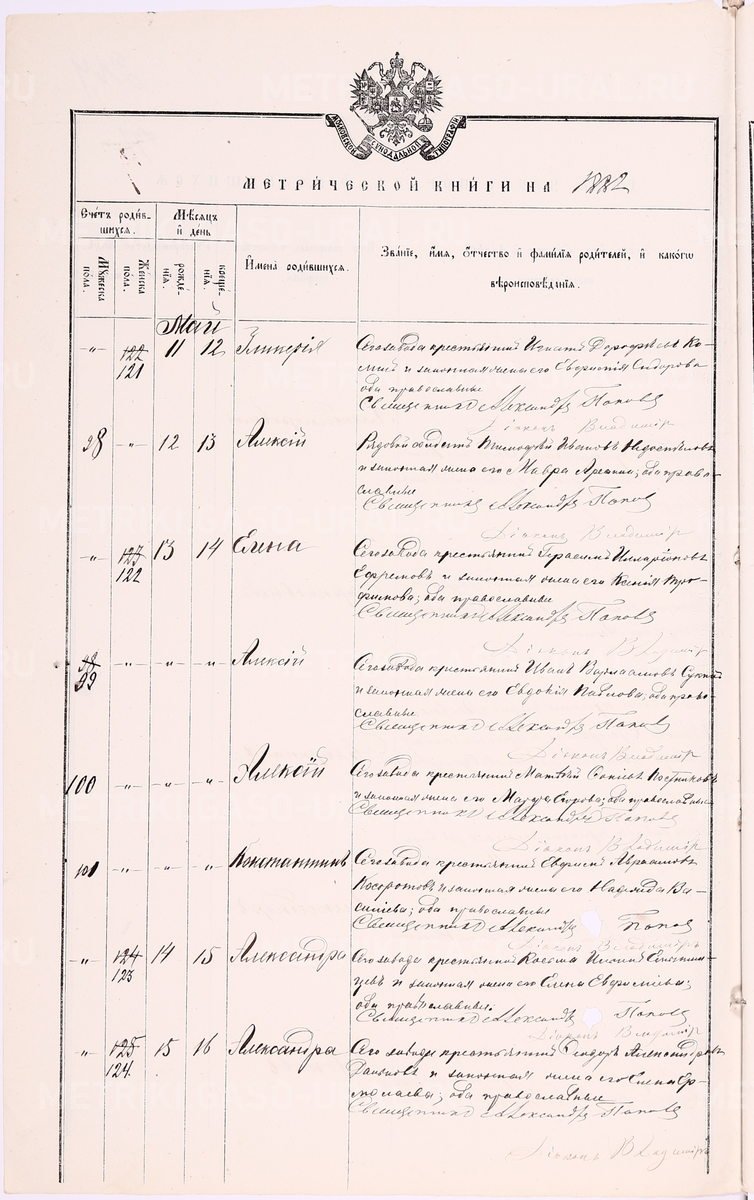 МОСКОВСКОЙ СѴНОДАЛЬНОЙ ТИПОГРАФІИ
МЕТРИ́ЧЕСКОЙ КНИ́ГИ НА 1882
Сче́тъ роди́в-
шихся.
Мѣ́сяцъ
и҆ де́нь
Му́жеска
по́ла.
Же́нска
по́ла.
рожде́-
нїя.
креще́-
нїя.
И҆мена̀ роди́вшихся.
Зва́нїе, и҆́мѧ, ѻ҆́тчество и҆ фами́лїѧ роди́телей, и҆ како́гѡ
вѣроисповѣ́данїѧ.
Май
„ 122 11 12 Гликерія Сего завода крестьянинъ Игнатій Дорофѣевъ Ко-
121 и законная жена его Евфросинія Сидорова
оба православные
Священникъ Александръ Поповъ
Діаконъ Владимір
98 „ 12 13 Алексій Рядовой Тимофей Ивановъ
и законная жена его Мавра оба право-
славные
Священникъ Александръ Поповъ
Діаконъ Владимір
„ 123 13 14 Елена Сего завода крестьянинъ Герасимъ Илларіоновъ
122 Ефремовъ и законная жена его Ксенія Тро-
фимова; оба православные
Священникъ Александръ Поповъ
Діаконъ Владимір
98 „ „ „ Алексій Сего завода крестьянинъ Иванъ Варлаамовъ
99 и законная жена его Евдокія Павлова; оба право-
славные
Священникъ Александръ Поповъ
Діаконъ Владимір
100 „ „ „ Алексій Сего завода крестьянинъ Матвѣй Костриковъ
и законная жена его Марфа Егорова; оба православные
Священникъ Александръ Поповъ
Діаконъ Владимір
101 „ „ „ Константинъ Сего завода крестьянинъ Авраамовъ
Косоротовъ и законная жена его Надежда Ва-
силіева; оба православные
Священникъ Александръ Поповъ
Діаконъ Владимір
„ 124 14 15 Александра Сего завода крестьянинъ Косьма
123 и законная жена его Елена
оба православные
Священникъ Александръ Поповъ
Діаконъ Владимір
„ 125 15 16 Александра Сего завода крестьянинъ Ѳеодоръ Александровъ
124 и законная жена его Ер-
молаева; оба православные
Священникъ Александръ Поповъ
Діаконъ Владимір